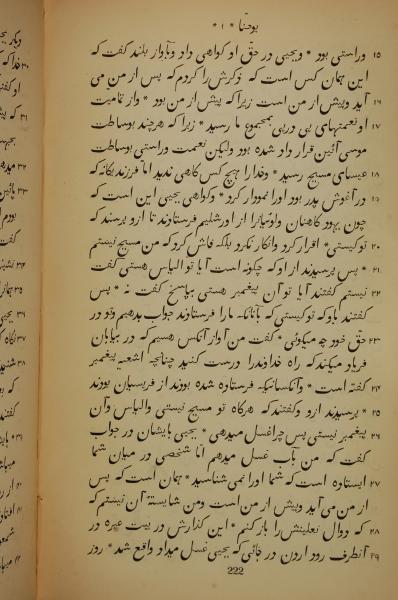 یوحنا * ۱ *
۱۵ وراستی بود * ویحیی در حق او گواهی داد وبآواز بلند گفت که
این همان کس است که ذکرش را کردم که پس از من می
۱۶ آید وپیش از من است زیرا که پیش از من بود * واز تمامیت
۱۷ او نعمتهای پی در پی بمجموع ما رسید * زیرا که هر چند بوساطت
موسی آئین قرار داد شده بود ولیکن نعمت وراستی بوساطت
۱۸ عیسای مسیح رسید * وخدا را هیچ کس گاهی ندید اما فرزند یگانه که
۱۹ در آغوش پدر بود اورا نمودار کرد * وگواهی یحیی این است که
چون یهود کاهنان ولویانرا از اورشلیم فرستادند تا ازو پرسند که
۲۰ تو کیستی * اقرار کرد وانکار نکرد بلکه فاش کرد که من مسیح نیستم
۲۱ * پس پرسیدند از او که چگونه است آیا تو الیاس هستی گفت
۲۲ نیستم گفتند آیا تو آن پیغمبر هستی بپاسخ گفت نه * پس
گفتند باو که تو کیستی که بآنانکه ما را فرستادند جواب بدهیم وتو در
۲۳ حق خود چه میگوئی * گفت من آواز آنکس هستم که در بیابان
فریاد میکند که راه خداوندرا درست کنید چنانچه اشعیه پیغمبر
۲۴ گفته است * وآنکسانیکه فرستاده شده بودند از فریسیان بودند
۲۵ * پرسیدند ازو وگفتند که هرگاه تو مسیح نیستی والیاس وآن
۲۶ پیغمبر نیستی پس چرا غسل میدهی * یحیی بایشان در جواب
گفت که من بآب غسل میدهم اما شخصی در میان شما
۲۷ ایستاده است که شما اورا نمی شناسید * همان است که پس
از من می آید وپیش از من است ومن شایستۀ آن نیستم که
۲۸ که دوال نعلینش را باز کنم * این گذارش در بیت عبره در
۲۹ آنطرف رود اردن در جائی که یحیی غسل میداد واقع شد * روز
222